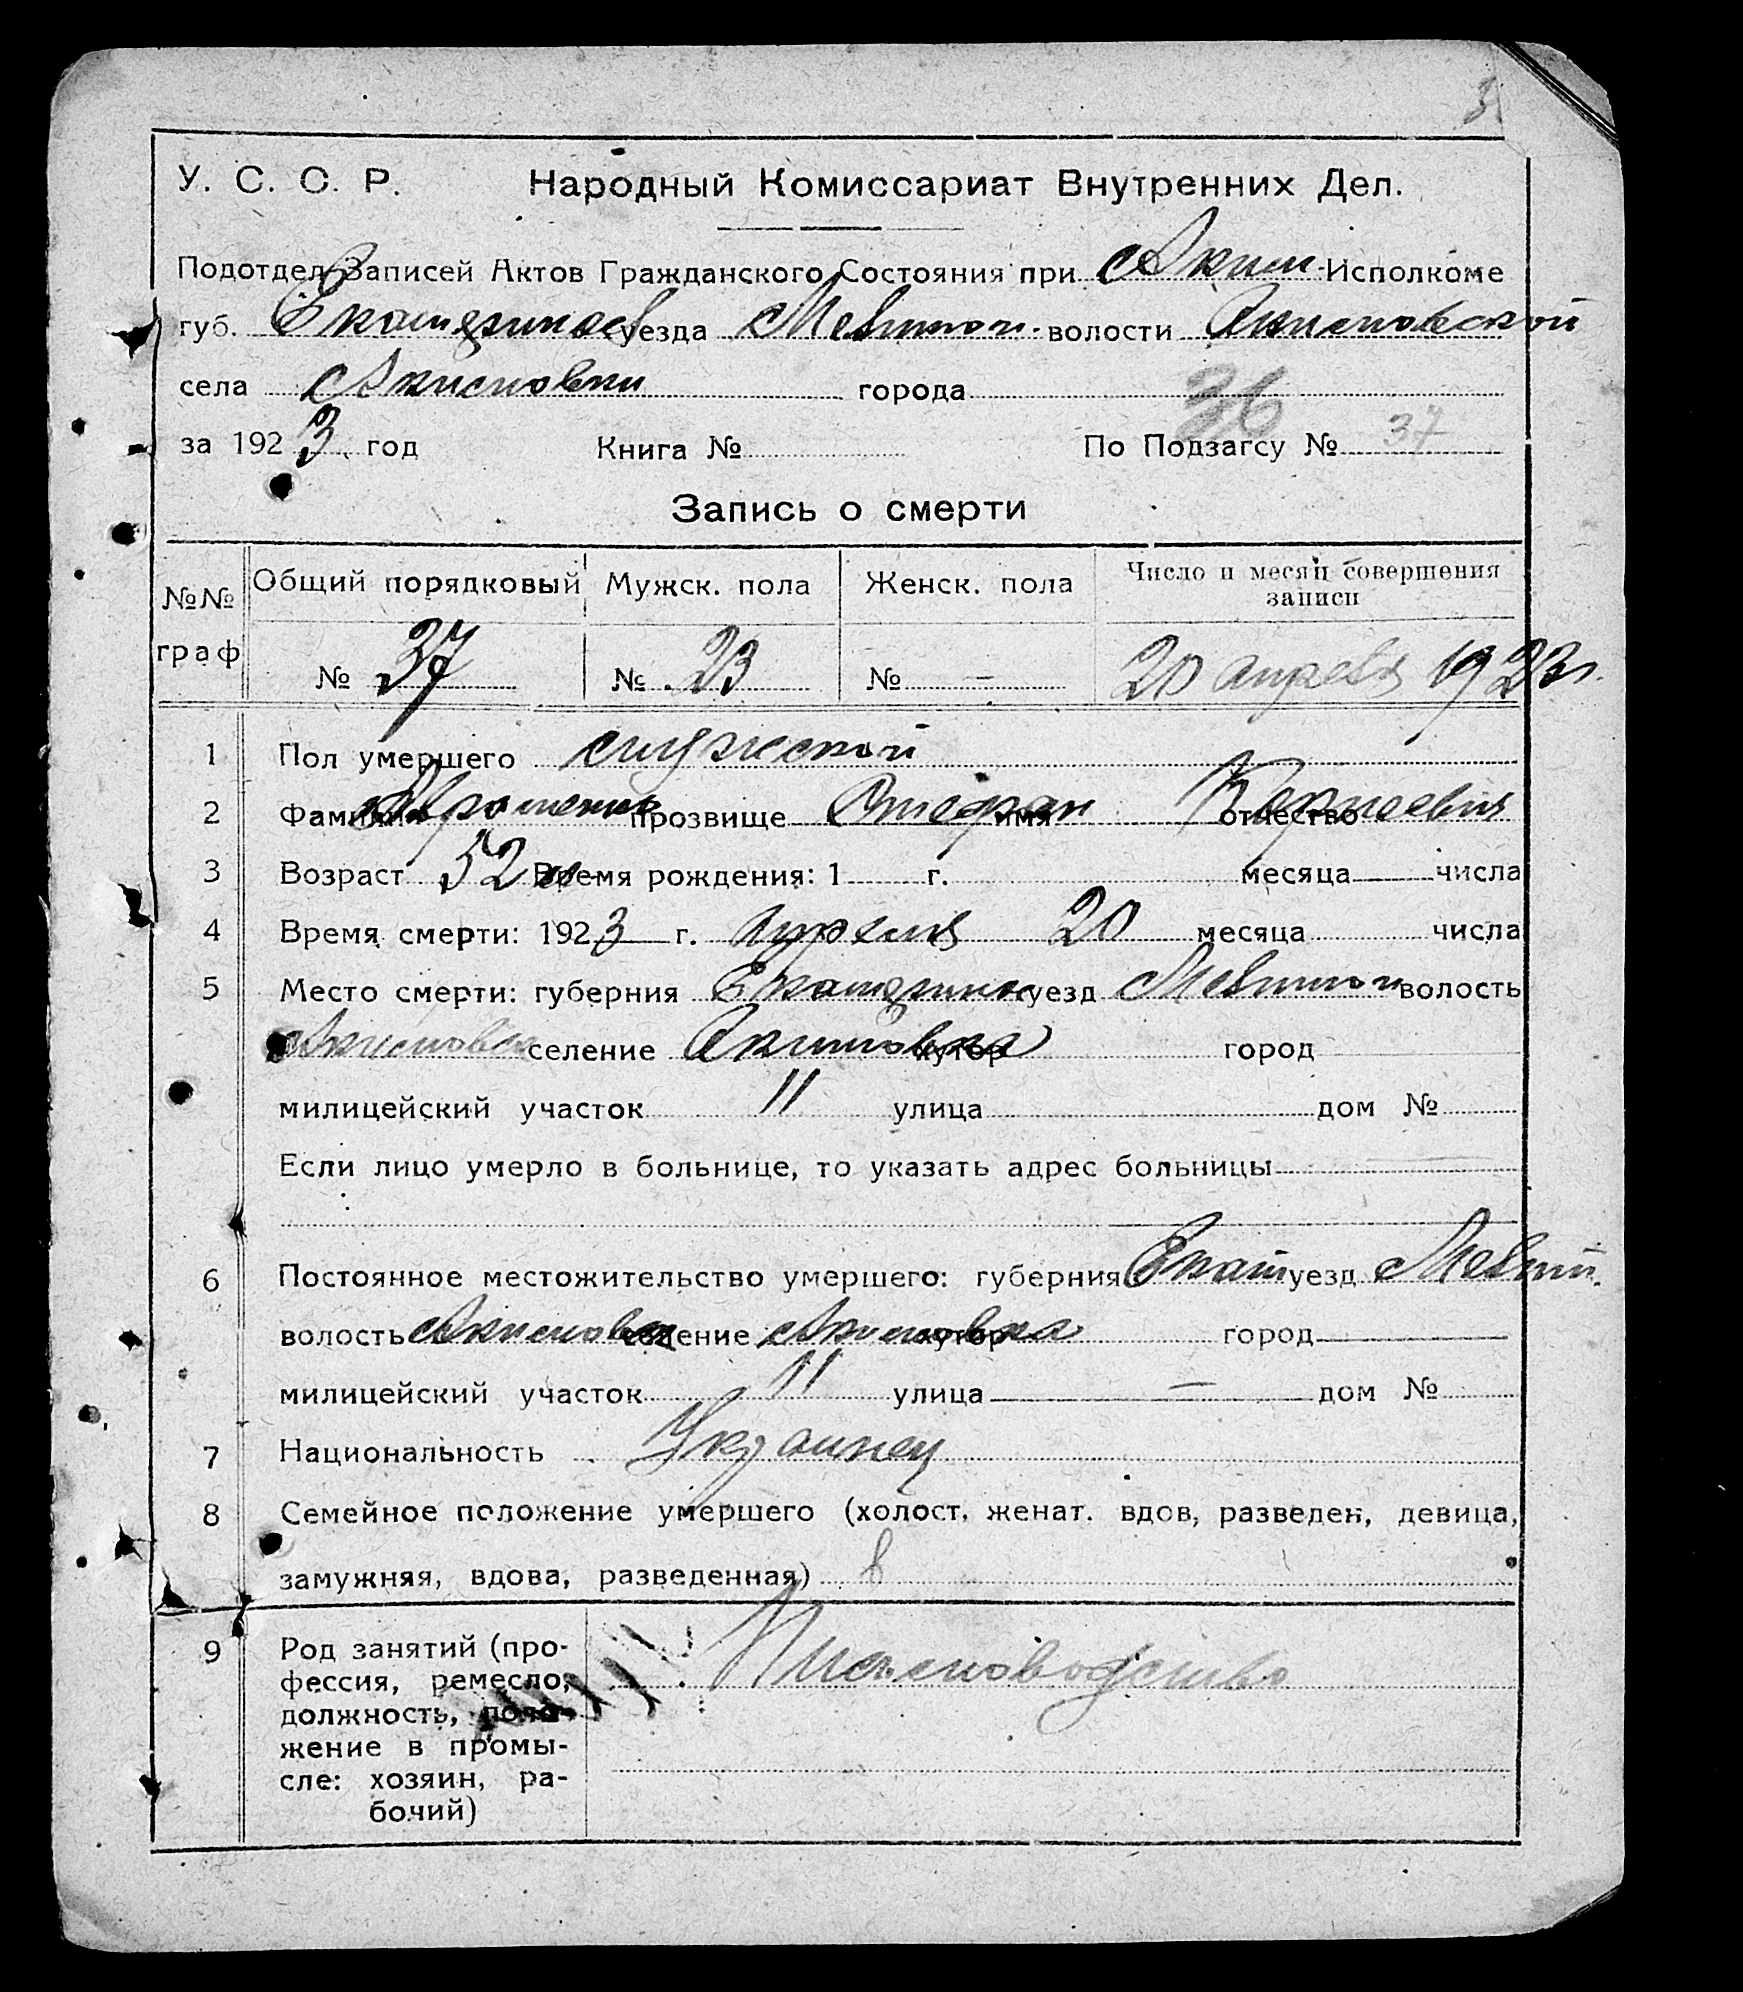 3
У. С. С. Р. Народный Комиссариат Внутренних Дел.
Подотдел Записей Актов Гражданского Состояния при Аким. Исполкоме
губ. Екатеринослав уезда Мелитоп. волости Акимовской
села Акимовки города
за 1923 год Книга № По Подзагсу № 37
36
Запись о смерти
№№ граф Общий порядковый Мужск. пола Женск. пола Число и месяц совершения записи
№ 37 № 23 № — 20 апреля 1923 г.
1 Пол умершего мужской
2 Фамилия прозвище имя отчество
3 Возраст 52 Время рождения: 1 г. месяца числа
4 Время смерти: 1923 г. Апреля 20 месяца числа
5 Место смерти: губерния Екатерино уезд Мелитоп волость
Акимовск селение Акимовка хутор город
милицейский участок 11 улица дом №
Если лицо умерло в больнице, то указать адрес больницы
6 Постоянное местожительство умершего: губерния Екат уезд Мелит.
волость Акимовск селение Акимовка хутор город
милицейский участок 11 улица — дом №
7 Национальность Украинец
8 Семейное положение умершего (холост, женат. вдов, разведен, девица,
замужняя, вдова, разведенная)
9 Род занятий (про-
фессия, ремесло,
должность, поло-
жение в промы-
сле: хозяин, ра-
бочий)